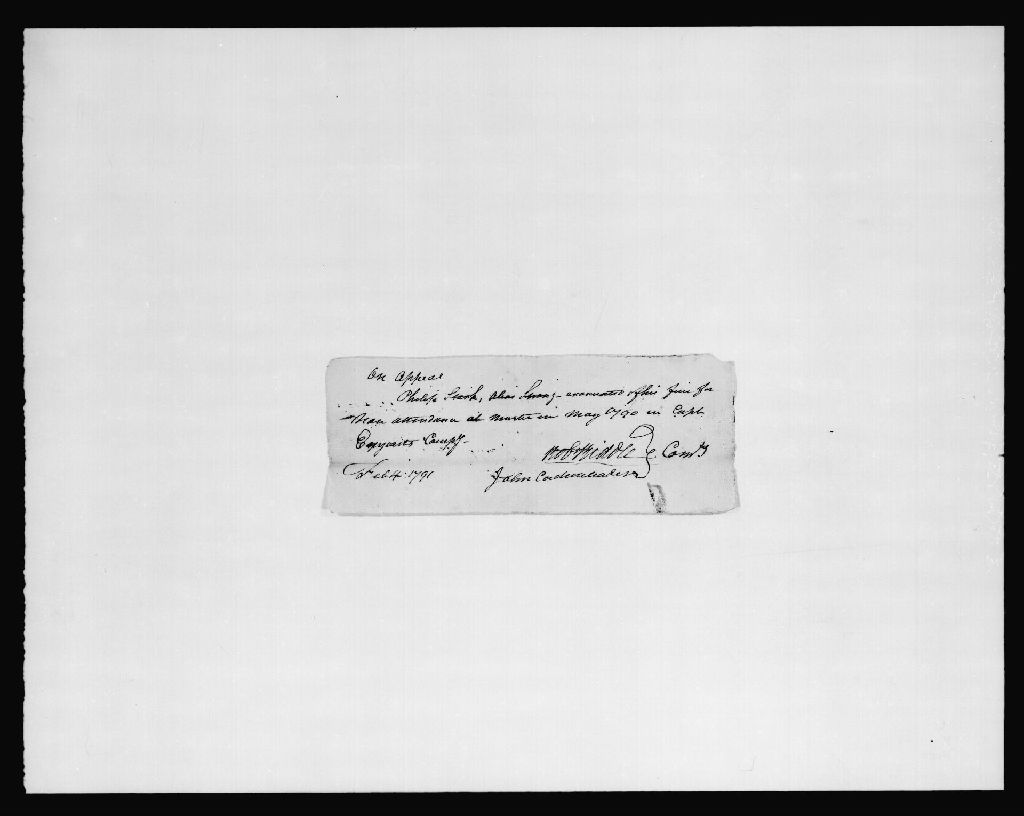 On Appeal
Philip alias exonerated of his fine for
Non attendance at Muster in May 1790 in Capt.
Compy.
Rob Biddle } Comrs
Feb 4 1791 John Cadwalader